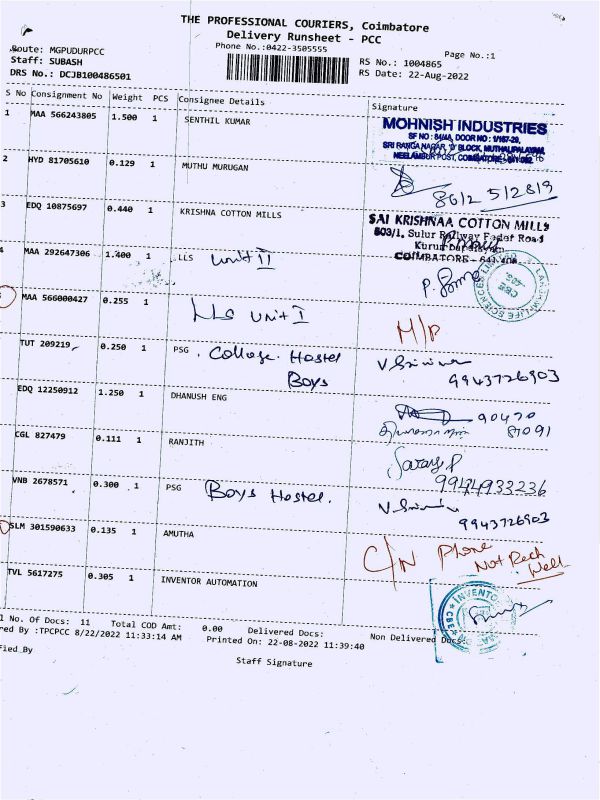 THE PROFESSIONAL COURIERS, Coimbatore
Delivery Runsheet - PCC
Phone No.:0422-3505555
Page No.:1
Route: MGPUDURPCC
Staff: SUBASH
DRS No.: DCJB100486501
RS No.: 1004865
RS Date: 22-Aug-2022
S No Consignment No Weight PCS Consignee Details Signature
1 MAA 566243805 1.500 1 SENTHIL KUMAR
MOHNISH INDUSTRIES
SF NO : 84/4A, DOOR NO : 1/167-29,
SRI RANGA NAGAR, 'D' BLOCK, MUTHALIPALAYAM,
NEELAMBUR POST, COIMBATORE
2 HYD 81705610 0.129 1 MUTHU MURUGAN
8612 512819
3 EDQ 10875697 0.440 1 KRISHNA COTTON MILLS
SAI KRISHNAA COTTON MILLS
603/1, Sulur Railway Feder Road
COIMBATORE - 641 402
4 MAA 292647306 1.400 1 LLS unit II
MAA 566000427 0.255 1 LLS unit I
M/P
TUT 209219 0.250 1 PSG. College. Hostel
Boys
9943726903
EDQ 12250912 1.250 1 DHANUSH ENG
90470
87091
CGL 827479 0.111 1 RANJITH
9944933236
VNB 2678571 0.300 1 PSG Boys Hostel.
9943726903
SLM 301590633 0.135 1 AMUTHA
C/N Phone
Not Rech
Well
TVL 5617275 0.305 1 INVENTOR AUTOMATION
l No. Of Docs: 11 Total COD Amt: 0.00 Delivered Docs: Non Delivered Docs:
red By :TPCPCC 8/22/2022 11:33:14 AM Printed On: 22-08-2022 11:39:40
fied By
Staff Signature